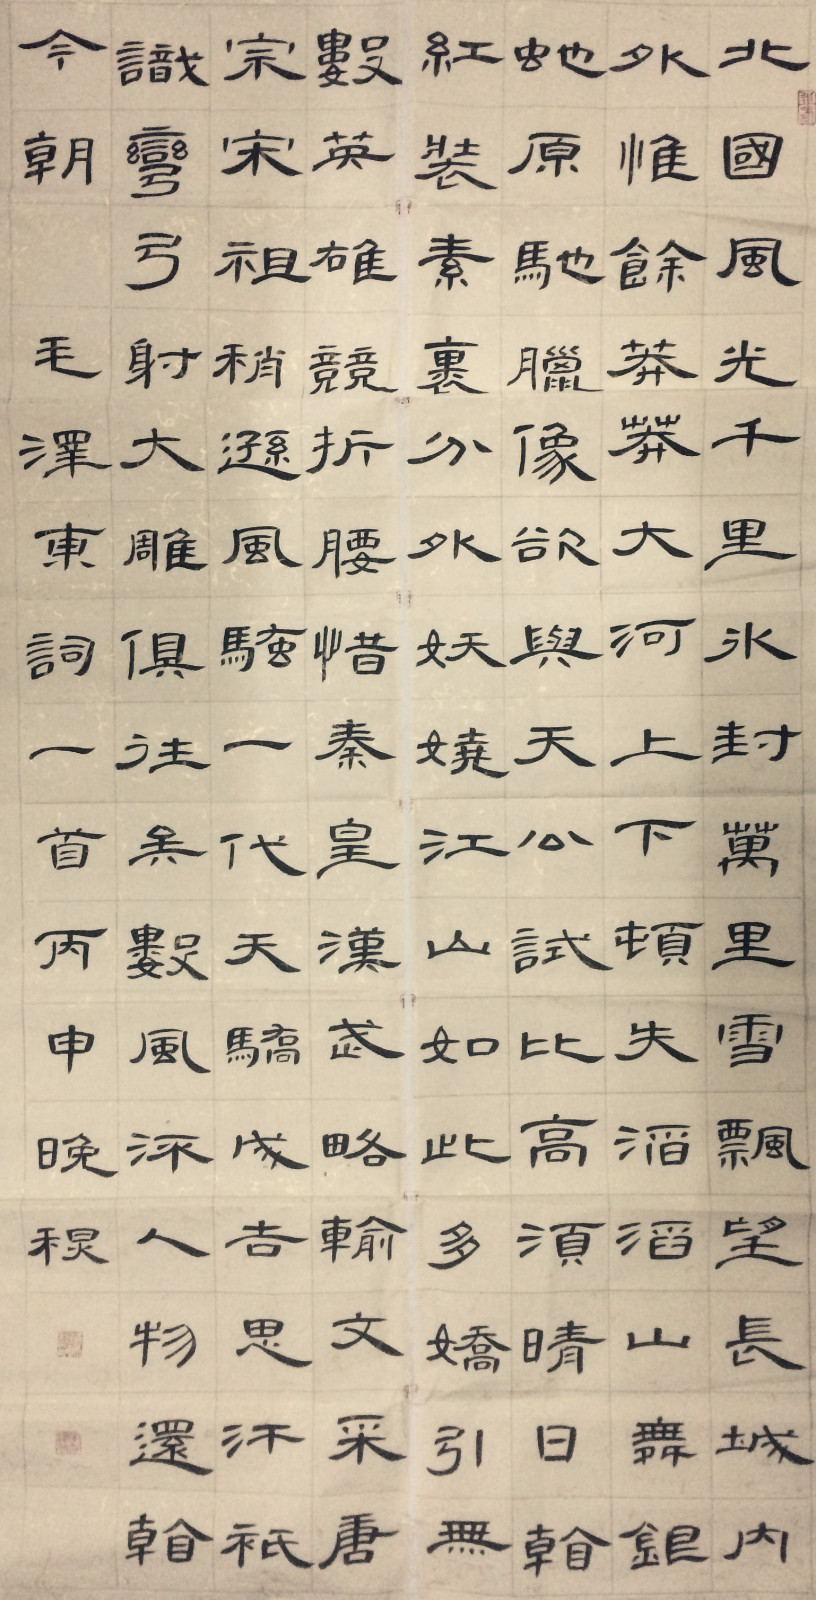 北國風光千里氷封萬里雪飄望長城内
外惟餘莽莽大河上下頓失滔滔山舞銀
虵原馳臘像欲與天公試比高須晴日看
紅裝素裹分外妖嬈江山如此多嬌引無
數英雄競折腰惜秦皇漢武略輸文采唐
宗宋祖稍遜風騷一代天驕成吉思汗衹
識彎弓射大雕俱往矣數風流人物還看
今朝 毛澤東詞一首丙申晚